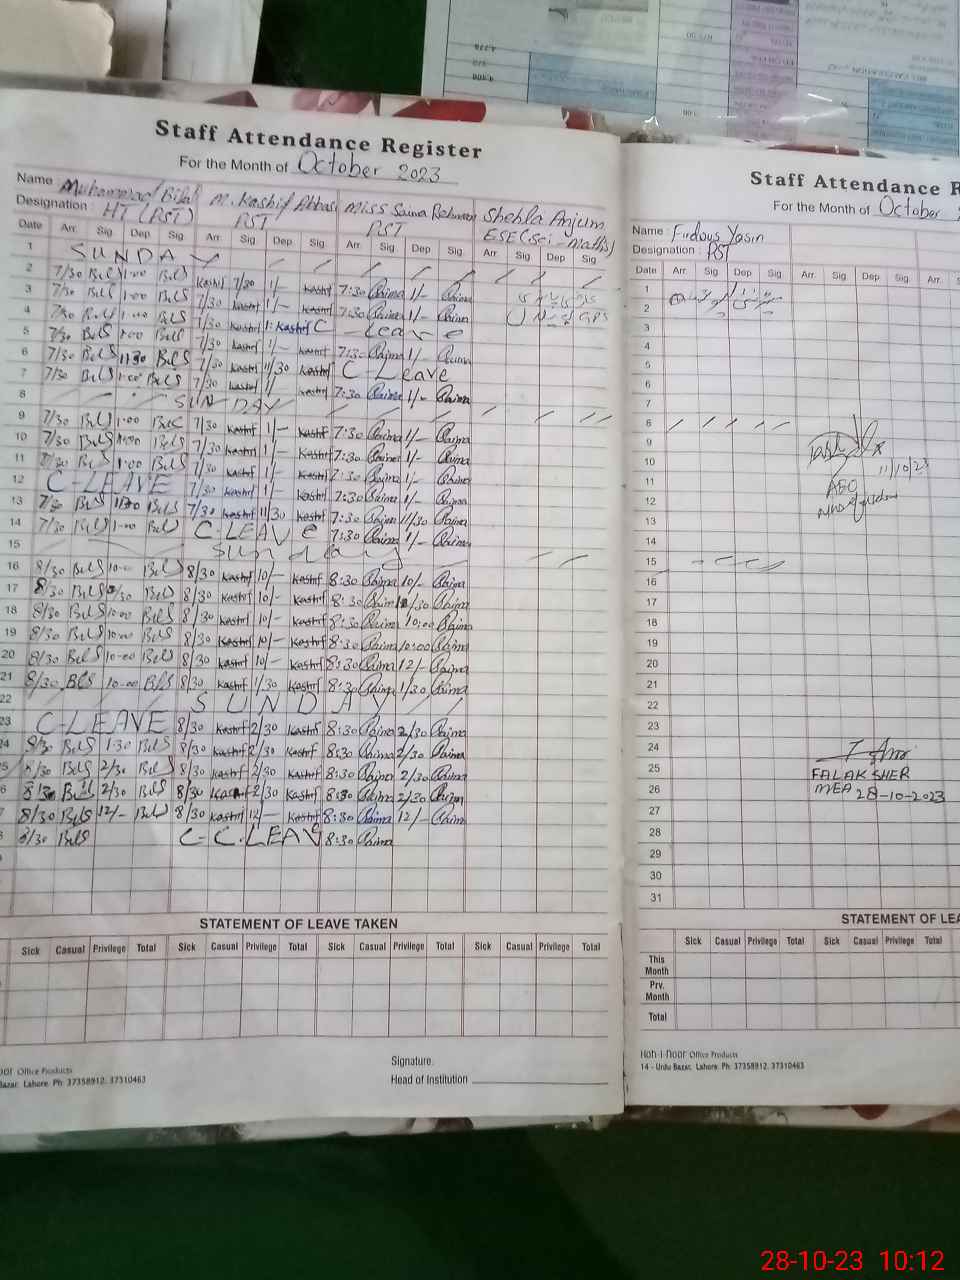 Staff Attendance Register
For the Month of October 2023
Name : Muhammad Bilal M. Kashif Abbas Miss Saima Rehman Shehla Anjum
Designation : HT (PST) PST PST ESE (Sci-Maths)
Date Arr. Sig. Dep. Sig. Arr. Sig. Dep. Sig. Arr. Sig. Dep. Sig. Arr. Sig. Dep. Sig.
1 SUNDAY
2 7/30 BilS 1:00 BilS 7/30 1/- Kashif 7:30 Saima 1/- Saima
3 7/30 BilS 1:00 BilS 7/30 Kashif 1/- Kashif 7:30 Saima 1/- Saima
4 7/30 BilS 1:00 BilS 7/30 Kashif 1: Kashif C - Leave
5 7/30 BilS 1:00 BilS 7/30 Kashif 1/- Kashif 7:30 Saima 1/- Saima
6 7/30 BilS 11:30 BilS 7/30 Kashif 11/30 Kashif C - Leave
7 7/30 BilS 1:00 BilS 7/30 Kashif 1/- Kashif 7:30 Saima 1/- Saima
8 SUNDAY
9 7/30 BilS 1:00 BilS 7/30 Kashif 1/- Kashif 7:30 Saima 1/- Saima
10 7/30 BilS 1:00 BilS 7/30 Kashif 1/- Kashif 7:30 Saima 1/- Saima
11 8/30 BilS 1:00 BilS 7/30 Kashif 1/- Kashif 7:30 Saima 1/- Saima
12 C-LEAVE 7/30 Kashif 1/- Kashif 7:30 Saima 1/- Saima
13 7/30 BilS 11:30 BilS 7/30 Kashif 11/30 Kashif 7:30 Saima 11/30 Saima
14 7/30 BilS 1:00 BilS C-LEAVE 7:30 Saima 1/- Saima
15 Sunday
16 8/30 BilS 10:00 BilS 8/30 Kashif 10/- Kashif 8:30 Saima 10/- Saima
17 8/30 BilS /30 BilS 8/30 Kashif 10/- Kashif 8:30 Saima /30 Saima
18 8/30 BilS 10:00 BilS 8/30 Kashif 10/- Kashif 8:30 Saima 10:00 Saima
19 8/30 BilS 10:00 BilS 8/30 Kashif 10/- Kashif 8:30 Saima 10:00 Saima
20 8/30 BilS 10-00 BilS 8/30 Kashif 10/- Kashif 8:30 Saima 12/- Saima
21 8/30 BilS 10-00 BilS 8/30 Kashif 1/30 Kashif 8:30 Saima 1/30 Saima
22 SUNDAY
23 C-LEAVE 8/30 Kashif 2/30 Kashif 8:30 Saima 2/30 Saima
24 8/30 BilS 1:30 BilS 8/30 Kashif 2/30 Kashif 8:30 Saima 2/30 Saima
5 8/30 BilS 2/30 BilS 8/30 Kashif 2/30 Kashif 8:30 Saima 2/30 Saima
6 8/30 BilS 2/30 BilS 8/30 Kashif 2/30 Kashif 8:30 Saima 2/30 Saima
7 8/30 BilS 12/- BilS 8/30 Kashif 12/- Kashif 8:30 Saima 12/- Saima
8 8/30 BilS C-C.LEAVE 8:30 Saima
STATEMENT OF LEAVE TAKEN
Sick Casual Privilege Total Sick Casual Privilege Total Sick Casual Privilege Total Sick Casual Privilege Total
oor Office Products
Bazar, Lahore. Ph: 37358912, 37310463
Signature.
Head of Institution
Staff Attendance R
For the Month of October
Name : Firdous Yasin
Designation : PST
Date Arr. Sig. Dep. Sig. Arr. Sig. Dep. Sig. Arr.
1
2
3
4
5
6
7
8
9
10
11
12
13
14
15
16
17
18
19
20
21
22
23
24
25
26
27
28
29
30
31
11/10/23
AEO
FALAK SHER
MEA 28-10-2023
STATEMENT OF LEA
Sick Casual Privilege Total Sick Casual Privilege Total
This Month
Prv. Month
Total
Hoh-I-Noor Office Products
14 - Urdu Bazar, Lahore. Ph: 37358912, 37310463
28-10-23 10:12